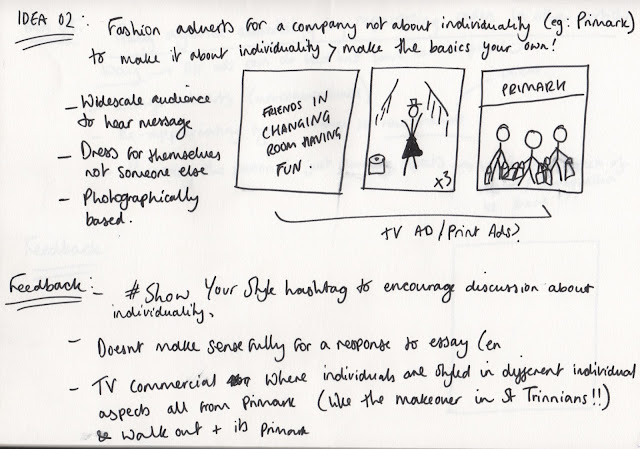 IDEA 02:- Fashion adverts for a company not about individuality (eg: Primark)
to make it about individuality > make the basics your own!
- Widescale audience
to hear message
- Dress for themselves
not someone else
- Photographically
based.
FRIENDS IN
CHANGING
ROOM HAVING
FUN.
x3
PRIMARK
TV AD/Print Ads?
Feedback:- #Show Your Style hashtag to encourage discussion about
individuality.
- Doesnt make sense fully for a response to essay (en
- TV commercial where individuals are styled in different individual
aspects all from Primark (like the makeover in St Trinnians!!)
& walk out + its Primark